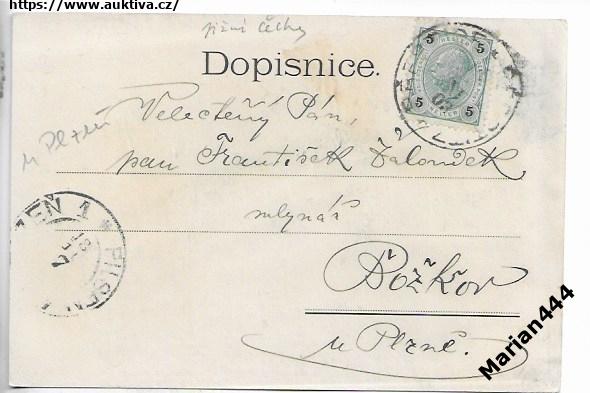 https://www.auktiva.cz/
jižní Čechy
Dopisnice.
5 5
HELLER
5 5
Velectěný Pán,
u Plzně
pan František
mlynář
PLZEŇ 1 * PILSEN
Božkov
u Plzně.
Marian444